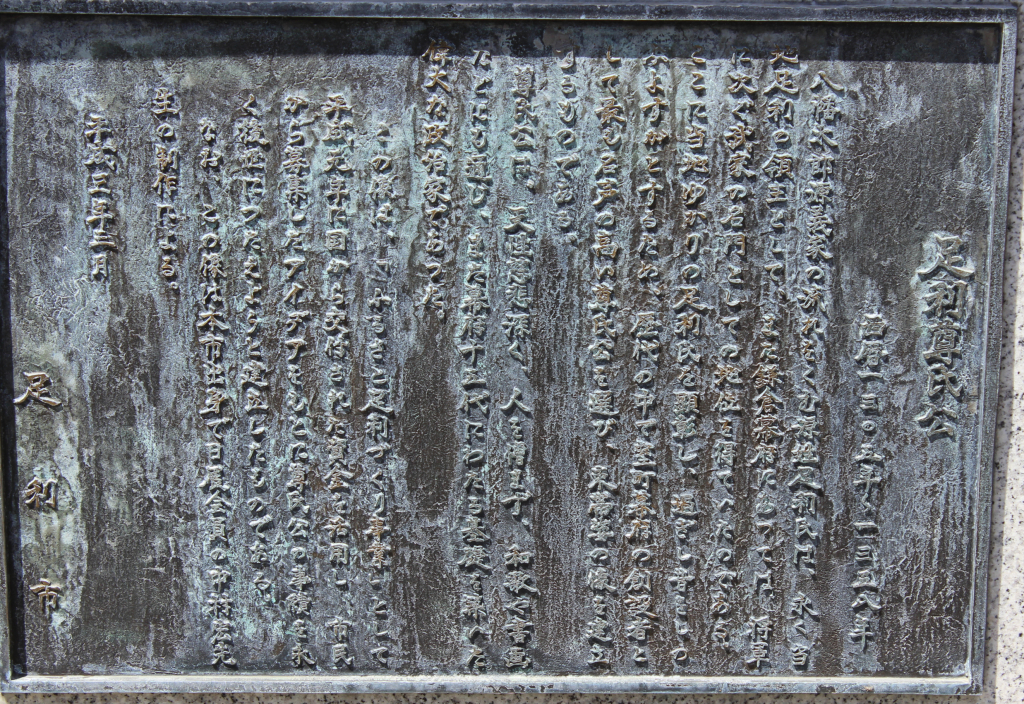 足利尊氏公
西暦一三〇五年〜一三五八年
八幡太郎源義家の流れをくむ源姓足利氏は、永く当
地足利の領主として、また鎌倉幕府にあっては、将軍
に次ぐ武家の名門としての地位を得ていたのである。
ここに当地ゆかりの足利氏を顕彰し、道しるべとしの
よすがとするため、歴代の中で室町幕府の創設者と
して最も名声の高い尊氏公を選び、束帯姿の像を建立
するものである。
尊氏公は、天性慈悲深く、人を憎まず、和歌や書画
などにも通じ、また幕府十二代にわたる基礎を築いた
偉大な政治家であった。
この像は、「ふるさと足利づくり事業」として
平成元年に国から交付された資金を活用し、市民
から募集したアイデアをもとに尊氏公の事績を永
く後世につたえようと建立したものである。
なお、この像は本市出身で日展会員の中村宏先
生の制作による。
平成三年三月
足利市